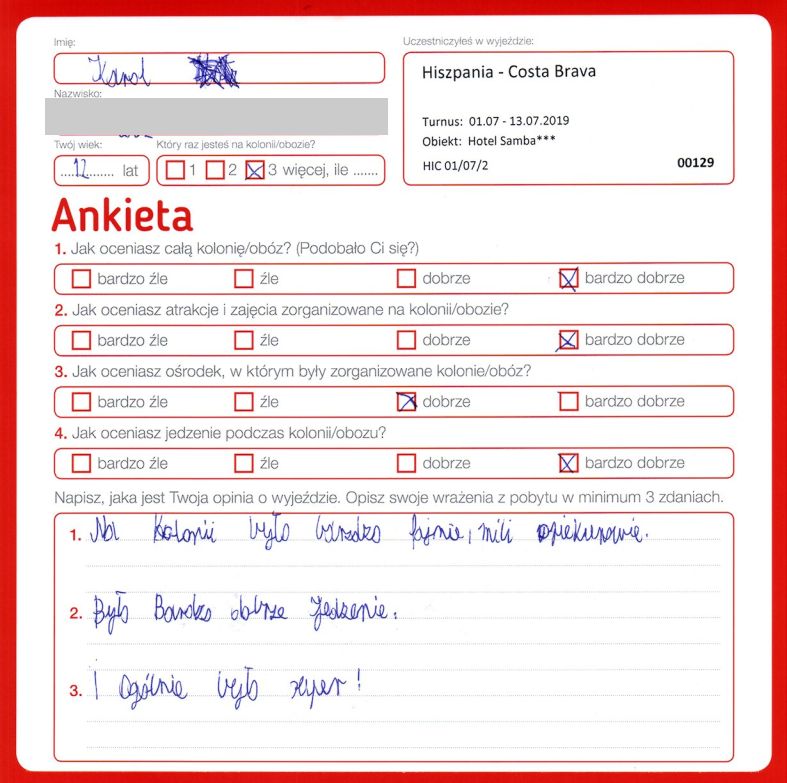 Imię:
Karol
Nazwisko:
Twój wiek:
12 lat
Który raz jesteś na kolonii/obozie?
1 2 3 więcej, ile .......
Uczestniczyłeś w wyjeździe:
Hiszpania - Costa Brava
Turnus: 01.07 - 13.07.2019
Obiekt: Hotel Samba***
HIC 01/07/2 00129
Ankieta
1. Jak oceniasz całą kolonię/obóz? (Podobało Ci się?)
bardzo źle źle dobrze bardzo dobrze
2. Jak oceniasz atrakcje i zajęcia zorganizowane na kolonii/obozie?
bardzo źle źle dobrze bardzo dobrze
3. Jak oceniasz ośrodek, w którym były zorganizowane kolonie/obóz?
bardzo źle źle dobrze bardzo dobrze
4. Jak oceniasz jedzenie podczas kolonii/obozu?
bardzo źle źle dobrze bardzo dobrze
Napisz, jaka jest Twoja opinia o wyjeździe. Opisz swoje wrażenia z pobytu w minimum 3 zdaniach.
1. Na kolonii było bardzo fajnie, mili opiekunowie.
2. Było Bardzo dobrze Jedzenie.
3. I Ogólnie było super!